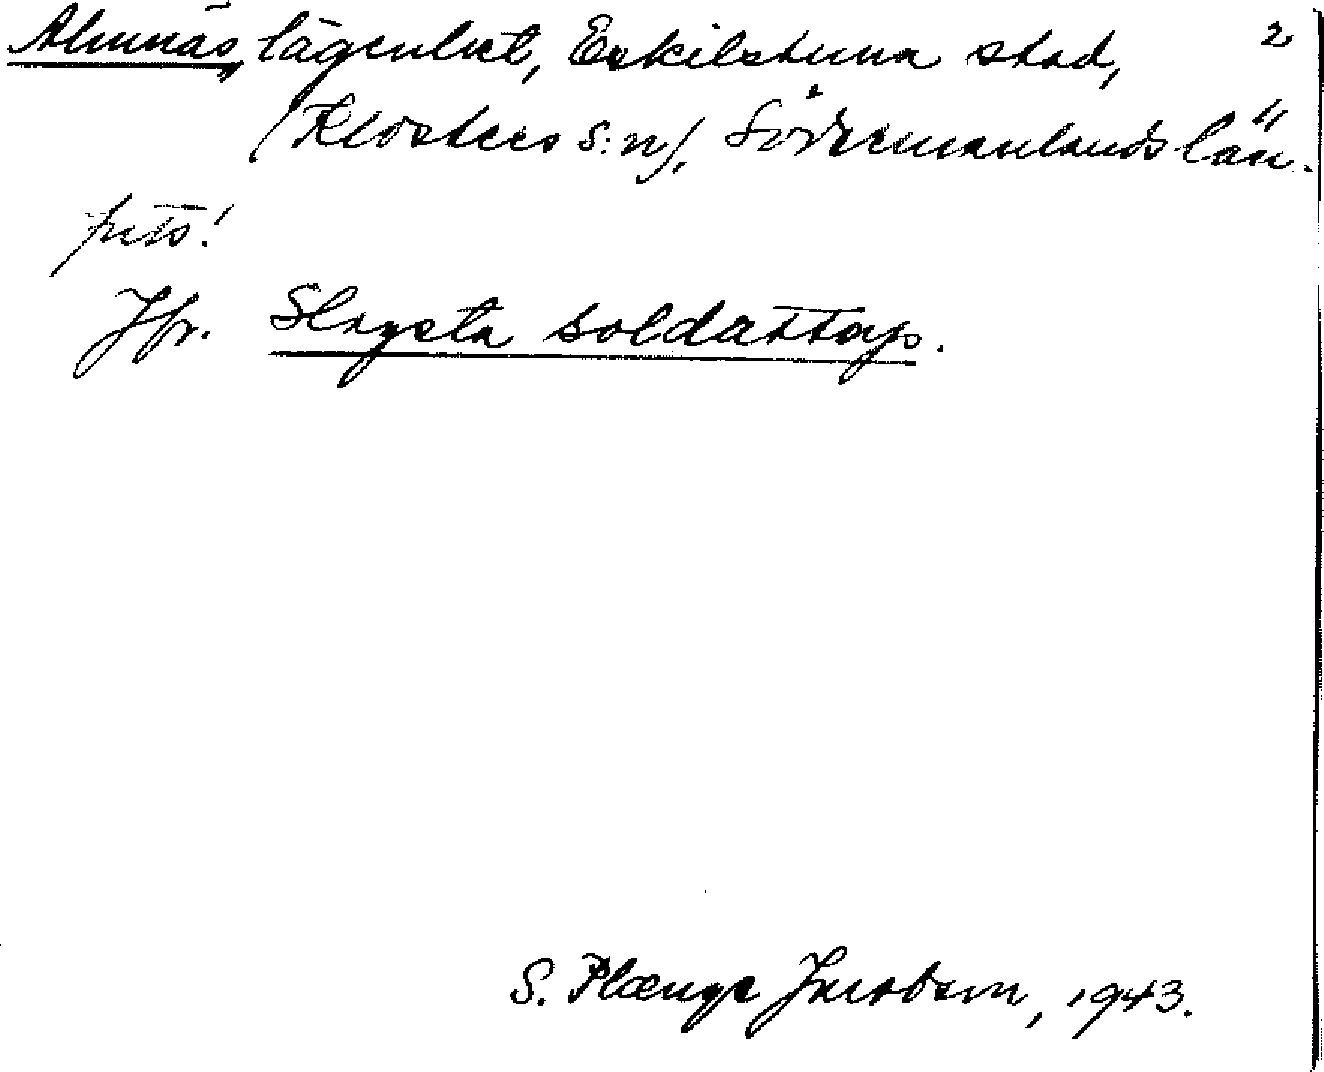 Almnäs, lägenhet, Eskilstuna stad, 2
(Klosters s:n), Södermanlands län.
Jfr. Slagsta soldattorp.
S. Plænge Jacobson, 1943.